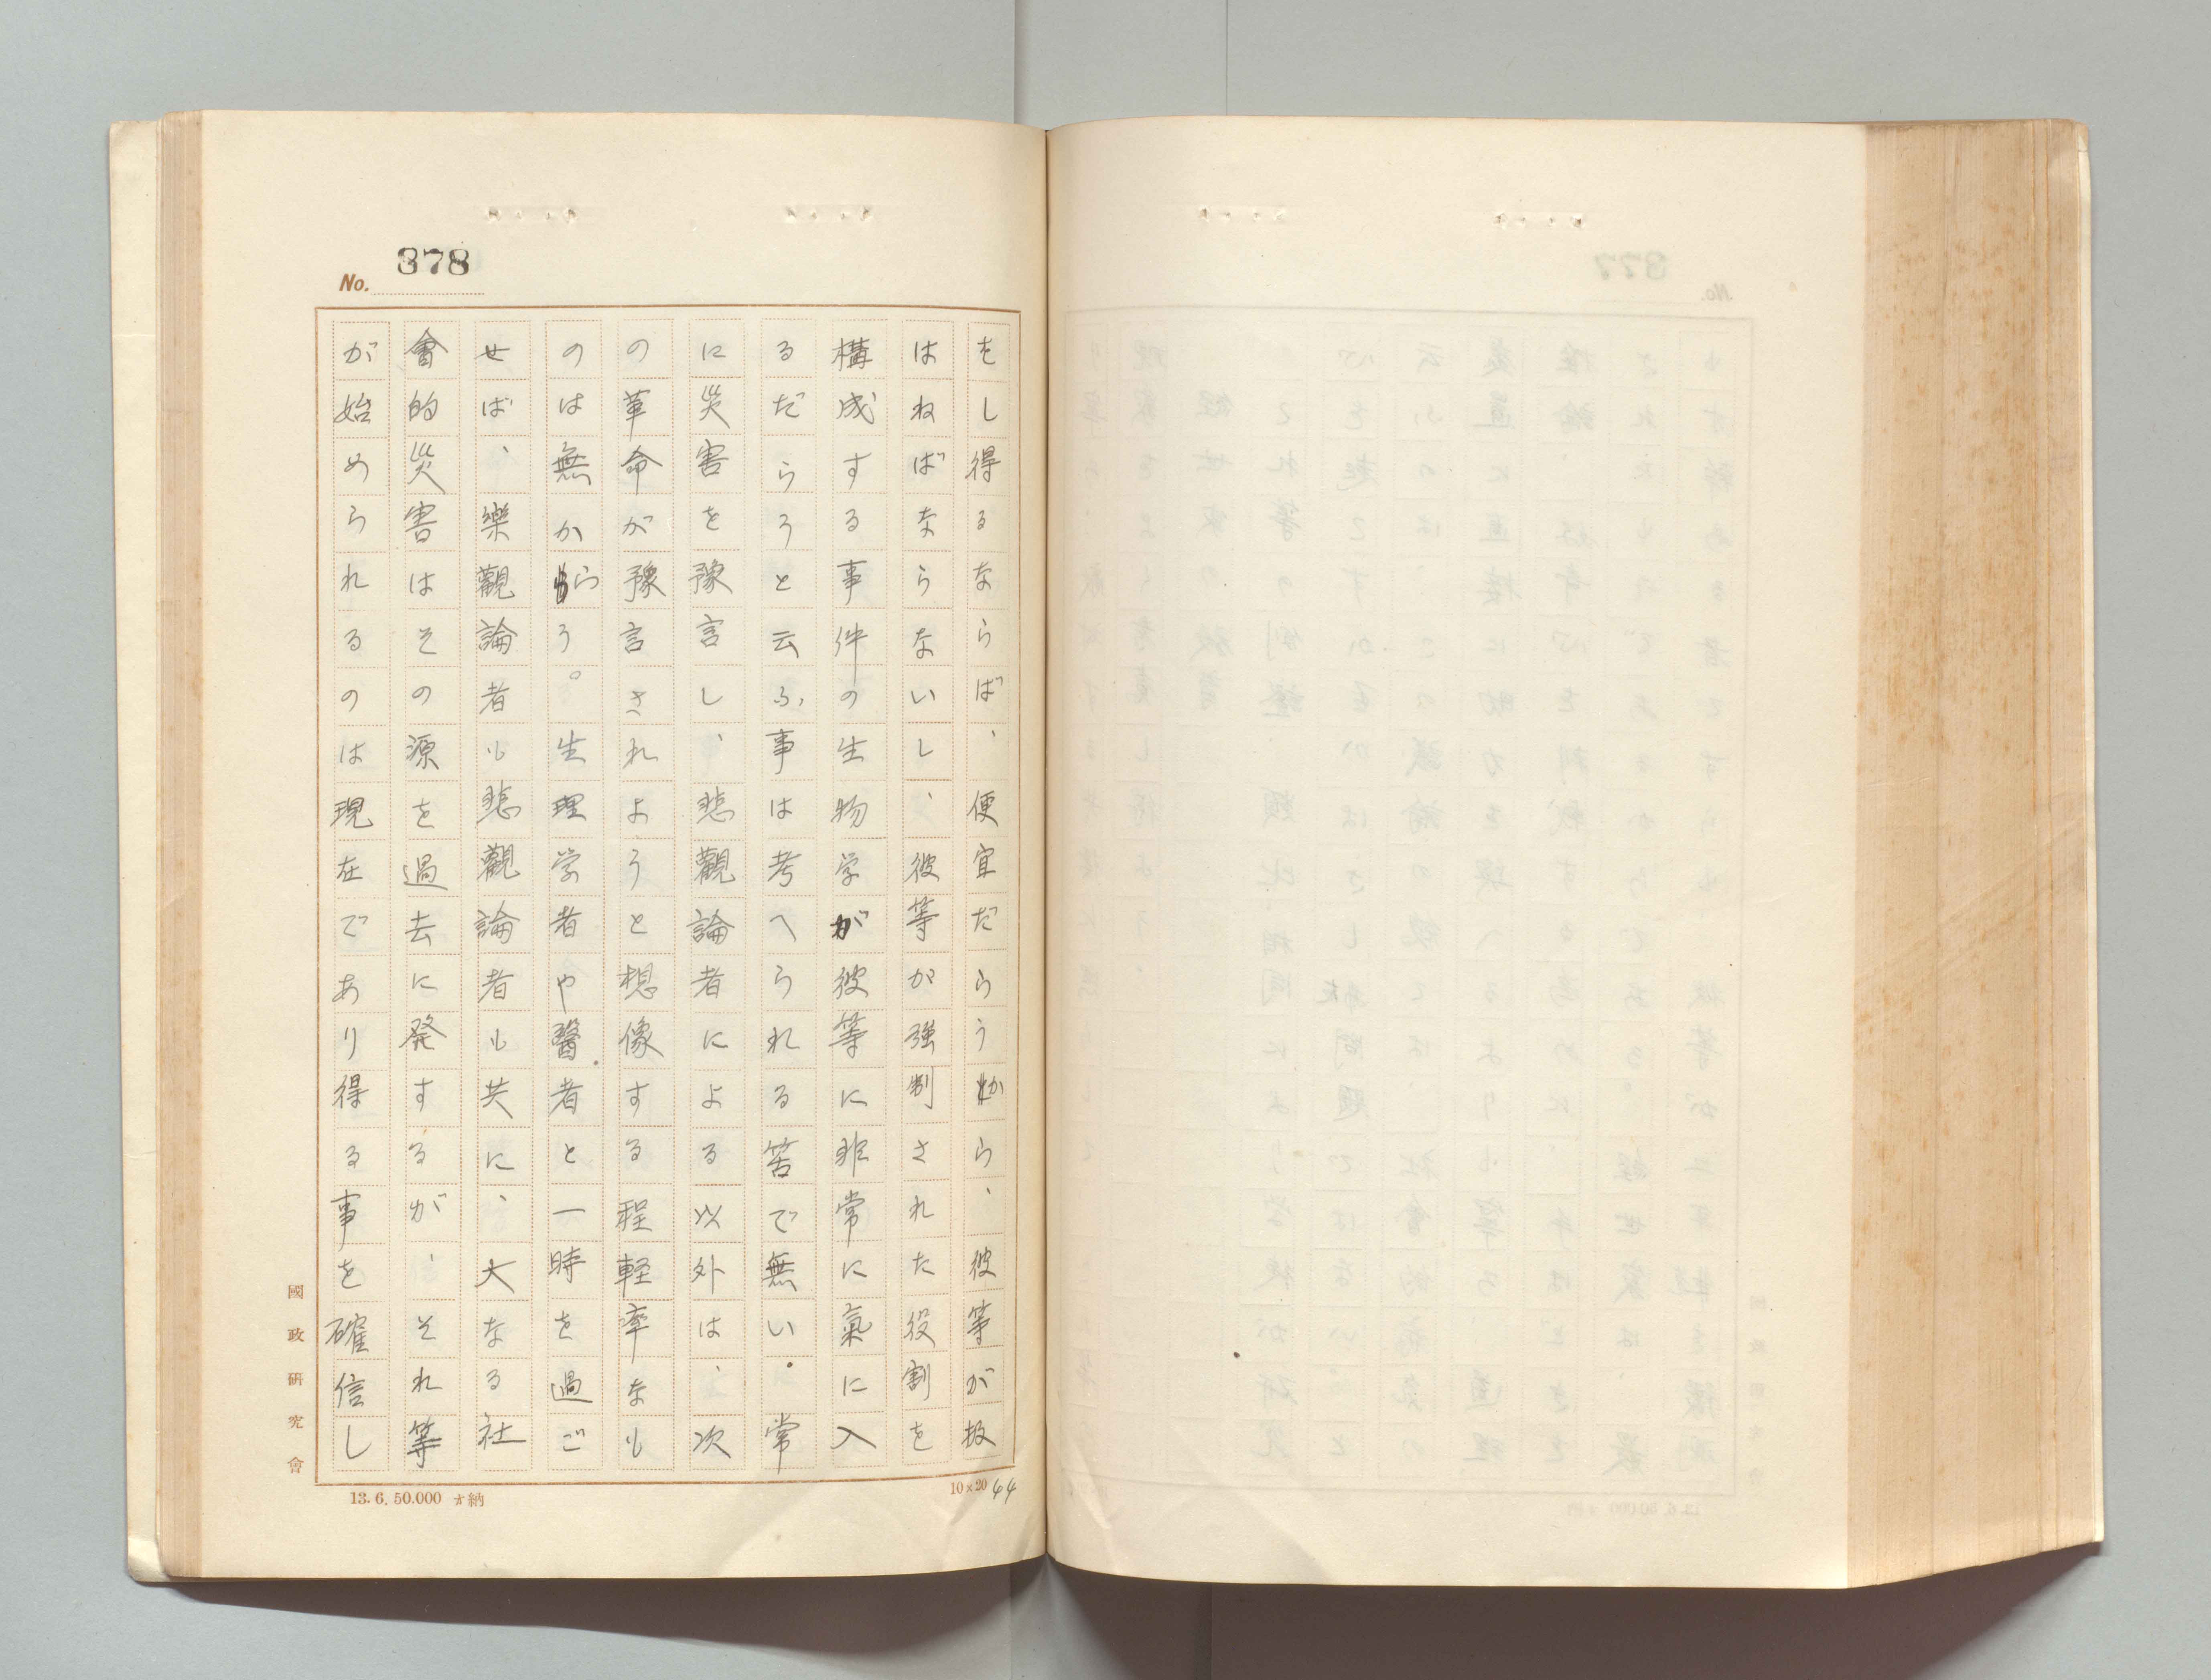 No. 378
をし得るならば、便宜だらうから、彼等が扱
はねばならないし、彼等が強制された役割を
構成する事件の生物学が彼等に非常に氣に入
るだらうと云ふ事は考へられる筈で無い。常
に災害を豫言し、悲觀論者による以外は、次
の革命が豫言されようと想像する程軽率なも
のは無からう。生理学者や醫者と一時を過ご
せば、樂觀論者も悲觀論者も共に、大なる社
會的災害はその源を過去に発するが、それ等
が始められるのは現在であり得る事を確信し
國政研究會
10×20 44
13.6.50.000 納